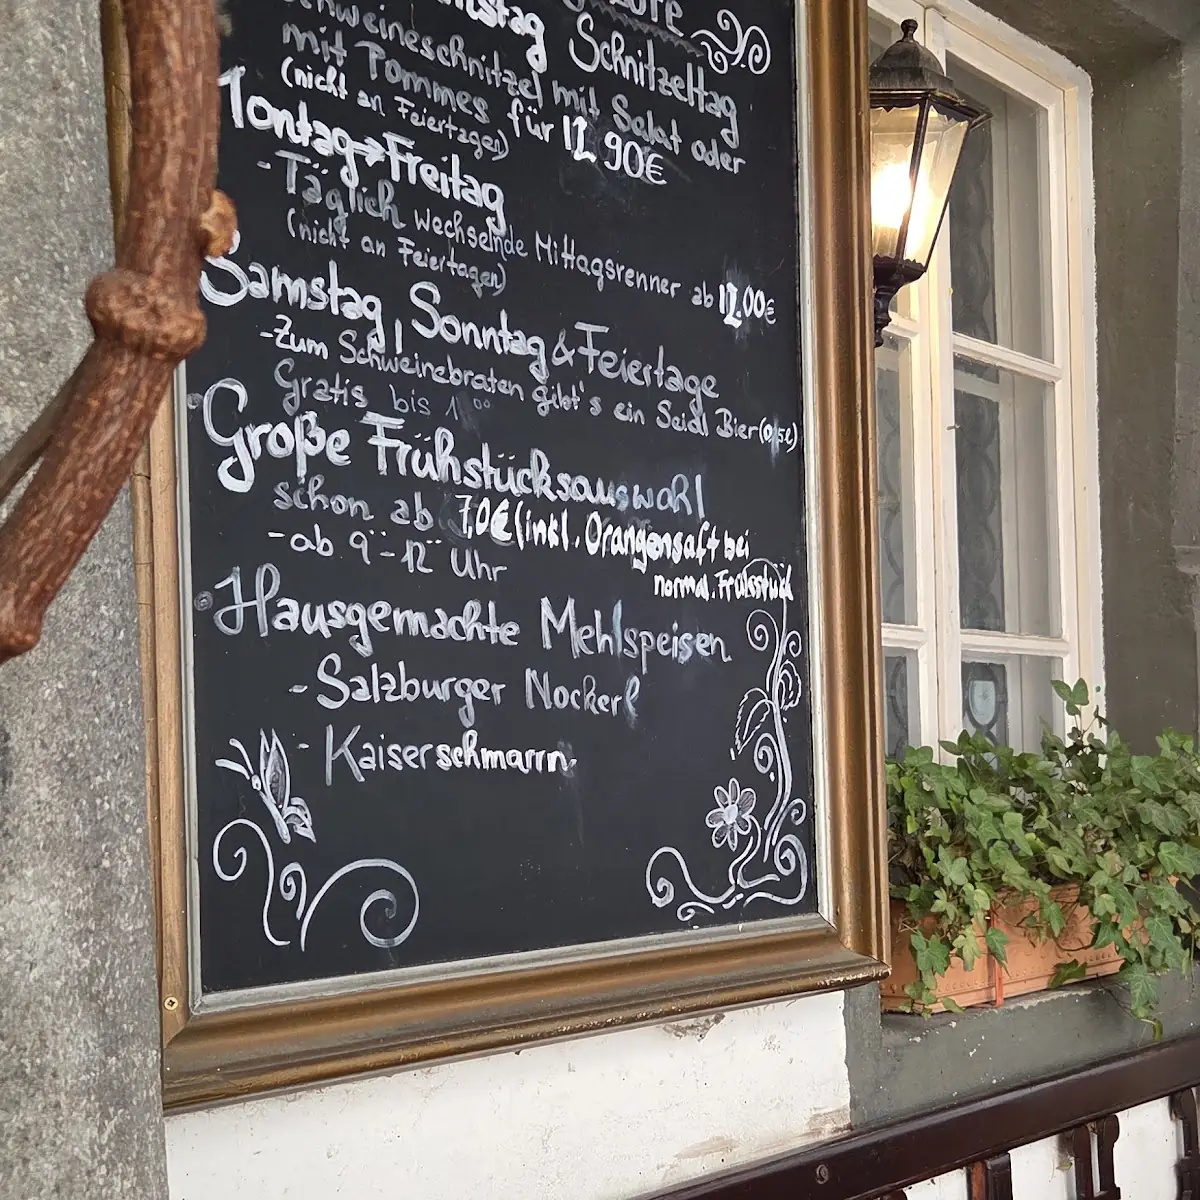 Schnitzeltag
Schweineschnitzel mit Salat oder
mit Pommes für 12.90€
(nicht an Feiertagen)
Montag→Freitag
- Täglich wechselnde Mittagsrenner ab 12.00€
(nicht an Feiertagen)
Samstag, Sonntag & Feiertage
-Zum Schweinebraten gibt's ein Seidl Bier (0,5l)
Gratis bis
Große Frühstücksauswahl
schon ab 7,0€ (inkl. Orangensaft bei
normal. Frühstück
- ab 9°°-12°° Uhr
Hausgemachte Mehlspeisen
- Salzburger Nockerl
- Kaiserschmarrn